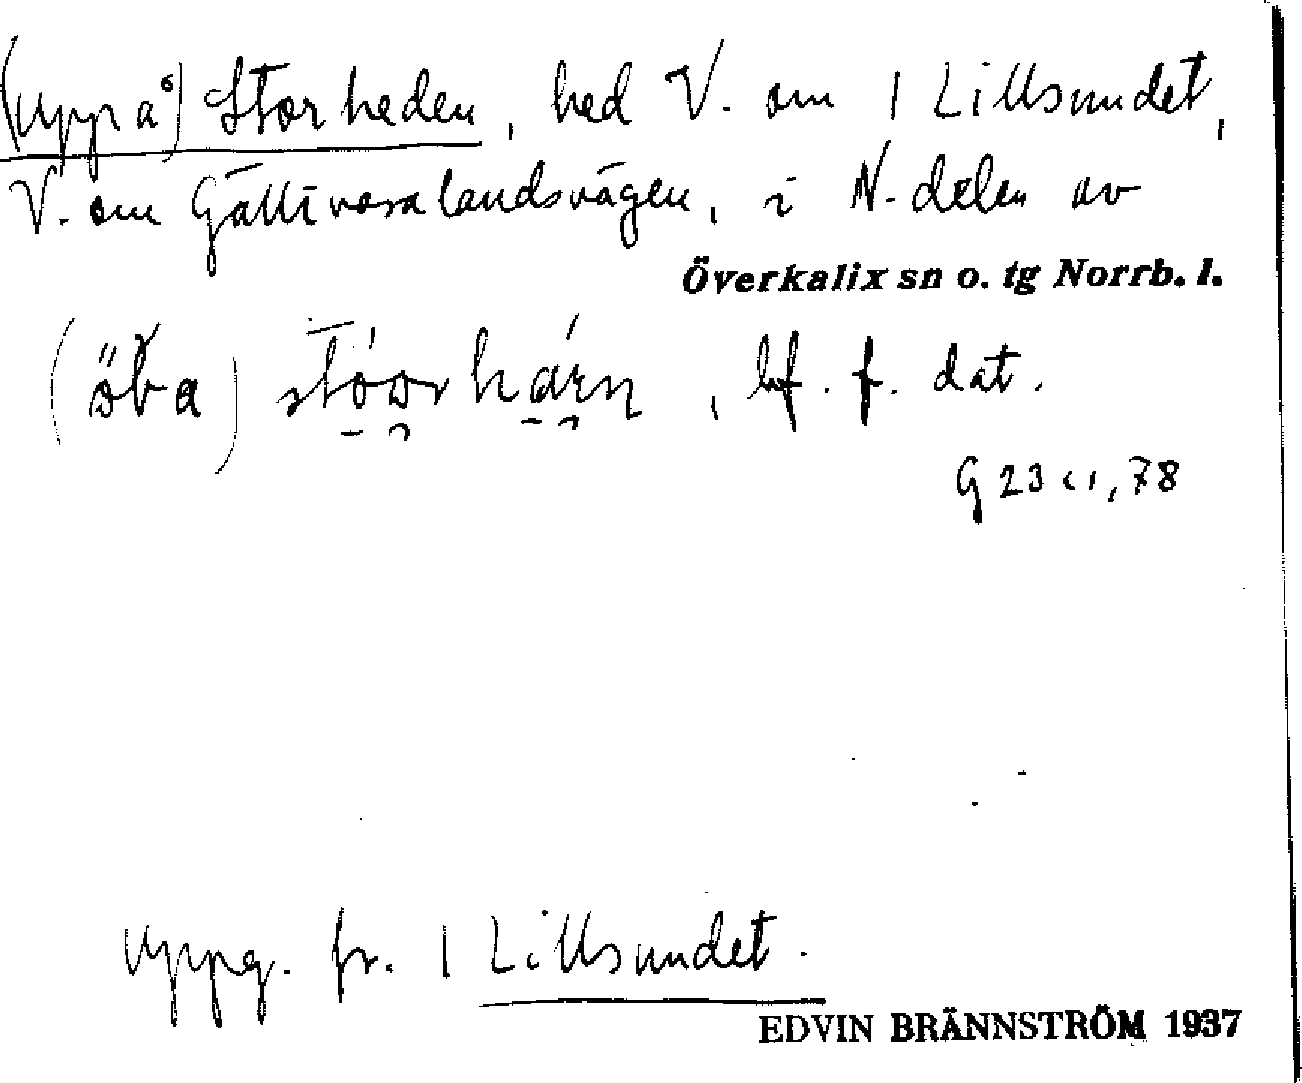 (uppå) Storheden, hed V. om 1 Lillsundet,
V. om Gällivaralandsvägen, i N. delen av
Överkalix sn o. tg Norrb. l.
(öba) stóorhárn, bf. f. dat.
G 23 c1, 78
uppg. fr. 1 Lillsundet.
EDVIN BRÄNNSTRÖM 1937